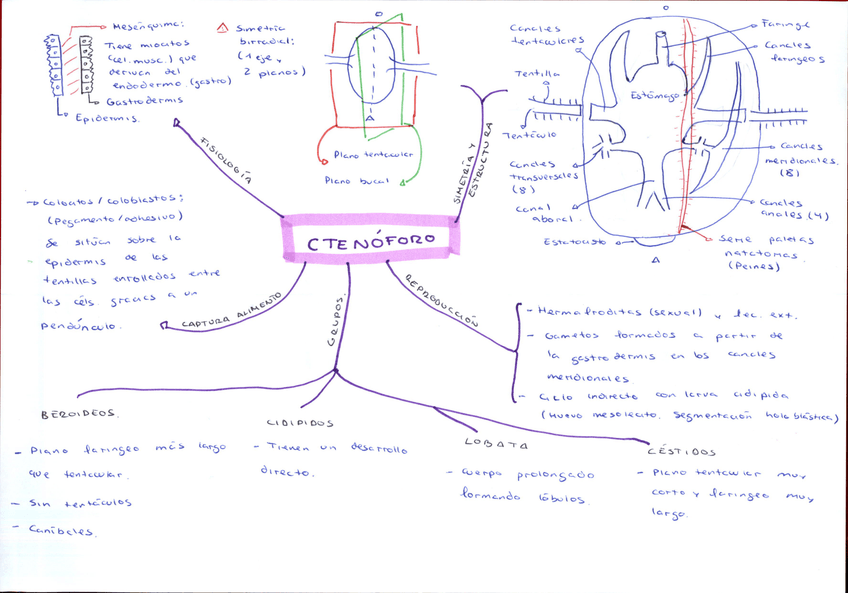 Mesénquima:
Tiene miocitos
(cel. musc.) que
derivan del
endodermo (gastro)
Gastrodermis
Epidermis.
Simetría
birradial:
(1 eje y
2 planos)
O
A
Plano tentacular
Plano bucal
O
Canales
tentaculares
Tentilla
Tentáculo
Canales
transversales
(8)
Canal
aboral.
Estatocisto
A
Estómago
Faringe
Canales
faringeos
Canales
meridionales.
(8)
Canales
anales (4)
Serie paletas
natatorias
(Peines)
FISIOLOGÍA
SIMETRÍA Y
ESTRUCTURA
CTENÓFORO
CAPTURA ALIMENTO
GRUPOS.
REPRODUCCIÓN
Colocitos / coloblastos:
(pegamento/adhesivo)
Se sitúan sobre la
epidermis de las
tentillas enrollados entre
las céls. gracias a un
pendúnculo.
- Hermafroditas (sexual) y fec. ext.
- Gametos formados a partir de
la gastrodermis en los canales
meridionales.
- Ciclo indirecto con larva cidipida
(Huevo mesolecito. Segmentación holoblástica)
BEROIDEOS.
- Plano faringeo más largo
que tentacular.
- Sin tentáculos
- Caníbales.
CIDIPIDOS
- Tienen un desarrollo
directo.
LOBATA
- Cuerpo prolongado
formando lóbulos.
CÉSTIDOS
- Plano tentacular muy
corto y faringeo muy
largo.